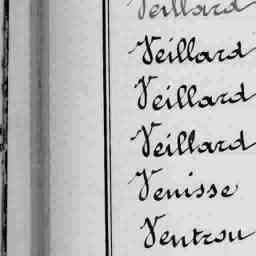 Veillard
Veillard
Veillard
Veillard
Venisse
Ventrou